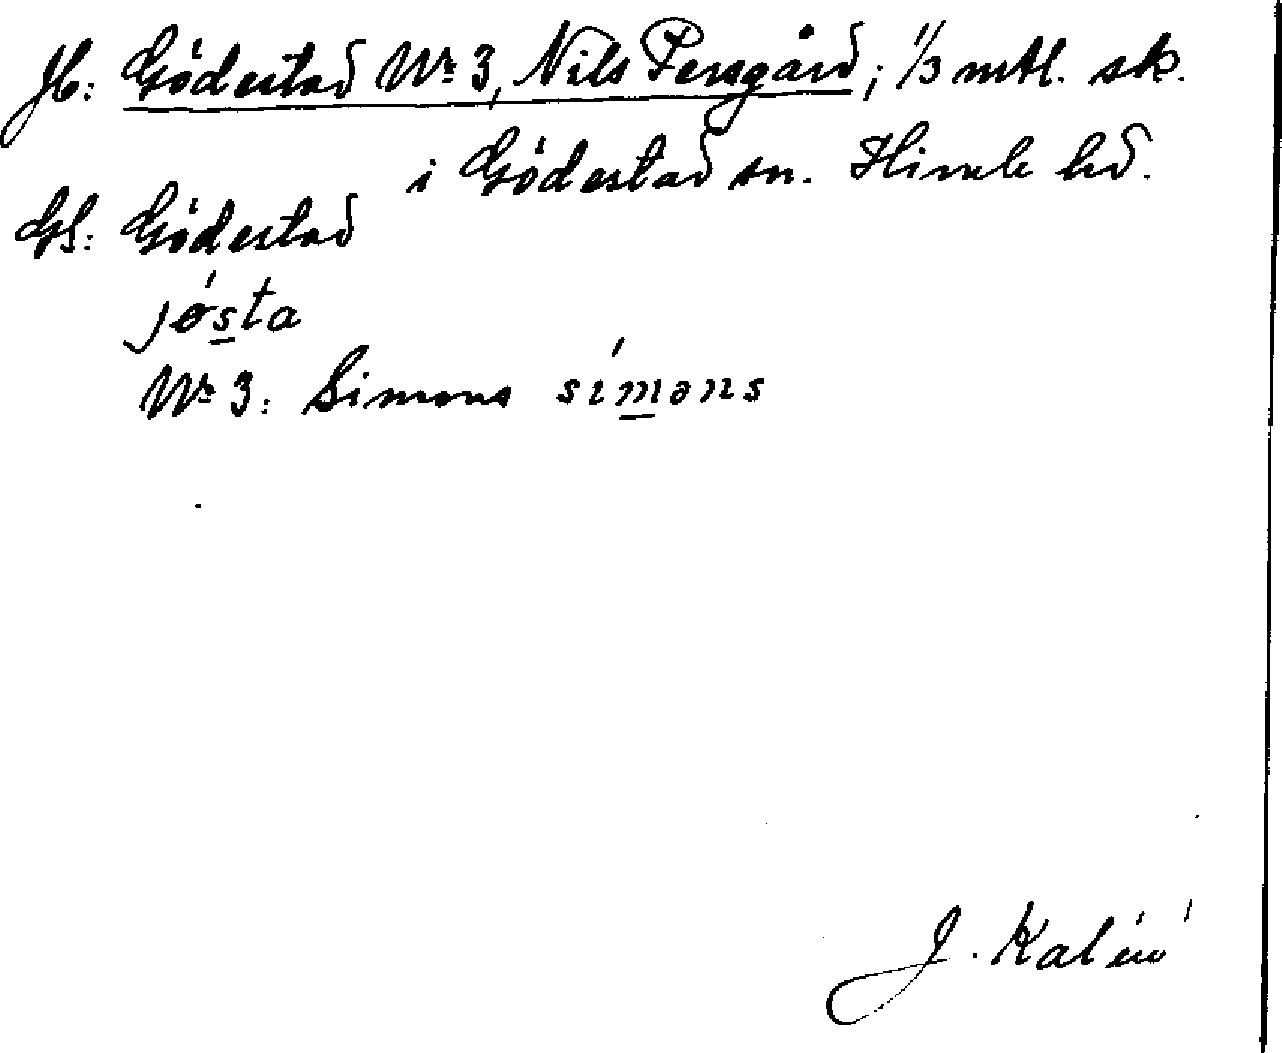 Jb: Gödestad Nr 3, Nils Persgård; 1/3 mtl. sk.
i Gödestad sn. Himle hd.
GS: Gödestad
jǿsta
Nr 3: Simons símɑns
J. Kalén